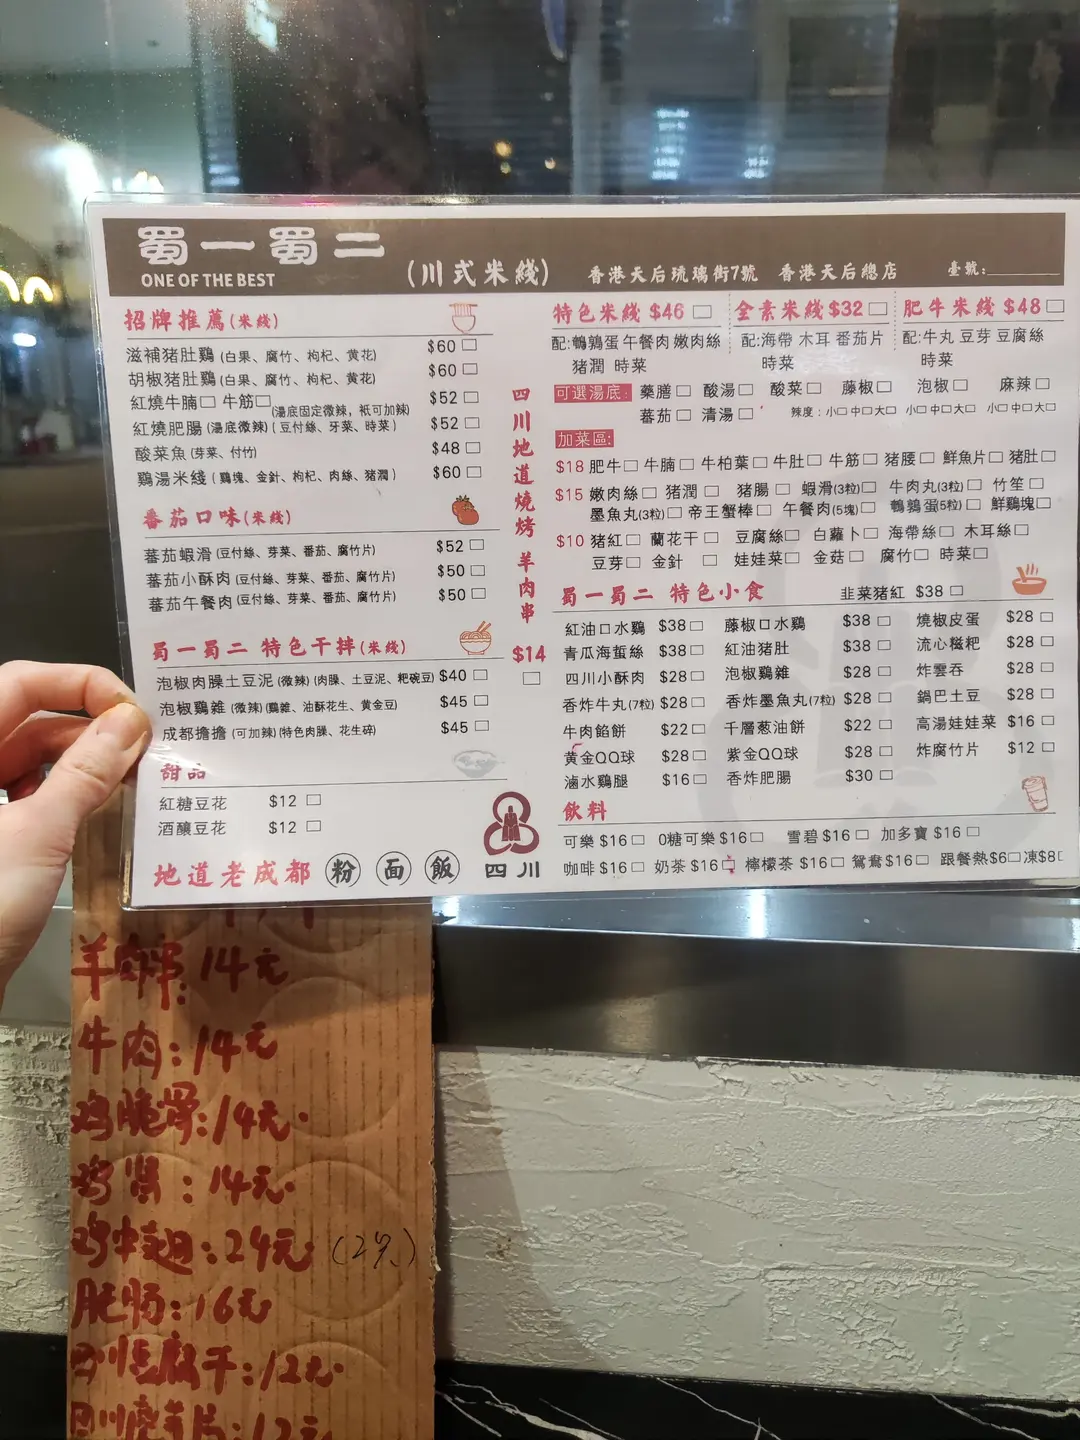 蜀一蜀二
ONE OF THE BEST
(川式米綫)
香港天后琉璃街7號 香港天后總店 臺號:
招牌推薦(米綫)
滋補猪肚鷄(白果、腐竹、枸杞、黄花) $60
胡椒猪肚鷄(白果、腐竹、枸杞、黄花) $60
紅燒牛腩 牛筋(湯底固定微辣,衹可加辣) $52
紅燒肥腸(湯底微辣)(豆付絲、牙菜、時菜) $52
酸菜魚(芽菜、付竹) $48
鷄湯米綫(鷄塊、金針、枸杞、肉絲、猪潤) $60
番茄口味(米綫)
蕃茄蝦滑(豆付絲、芽菜、番茄、腐竹片) $52
蕃茄小酥肉(豆付絲、芽菜、番茄、腐竹片) $50
蕃茄午餐肉(豆付絲、芽菜、番茄、腐竹片) $50
蜀一蜀二 特色干拌(米綫)
泡椒肉臊土豆泥(微辣)(肉臊、土豆泥、粑碗豆) $40
泡椒鷄雜(微辣)(鷄雜、油酥花生、黄金豆) $45
成都擔擔(可加辣)(特色肉臊、花生碎) $45
甜品
紅糖豆花 $12
酒釀豆花 $12
地道老成都 粉 面 飯
四川
四川地道燒烤 羊肉串
$14
特色米綫 $46
配:鵪鶉蛋 午餐肉 嫩肉絲
猪潤 時菜
全素米綫 $32
配:海帶 木耳 番茄片
時菜
肥牛米綫 $48
配:牛丸 豆芽 豆腐絲
時菜
可選湯底: 藥膳 酸湯 酸菜 藤椒 泡椒 麻辣
蕃茄 清湯 辣度:小 中 大 小 中 大 小 中 大
加菜區:
$18 肥牛 牛腩 牛柏葉 牛肚 牛筋 猪腰 鮮魚片 猪肚
$15 嫩肉絲 猪潤 猪腸 蝦滑(3粒) 牛肉丸(3粒) 竹笙
墨魚丸(3粒) 帝王蟹棒 午餐肉(5塊) 鵪鶉蛋(5粒) 鮮鷄塊
$10 猪紅 蘭花干 豆腐絲 白蘿卜 海帶絲 木耳絲
豆芽 金針 娃娃菜 金菇 腐竹 時菜
蜀一蜀二 特色小食 韭菜猪紅 $38
紅油口水鷄 $38 藤椒口水鷄 $38 燒椒皮蛋 $28
青瓜海蜇絲 $38 紅油猪肚 $38 流心糍粑 $28
四川小酥肉 $28 泡椒鷄雜 $28 炸雲吞 $28
香炸牛丸(7粒) $28 香炸墨魚丸(7粒) $28 鍋巴土豆 $28
牛肉餡餅 $22 千層葱油餅 $22 高湯娃娃菜 $16
黄金QQ球 $28 紫金QQ球 $28 炸腐竹片 $12
滷水鷄腿 $16 香炸肥腸 $30
飲料
可樂 $16 0糖可樂 $16 雪碧 $16 加多寶 $16
咖啡 $16 奶茶 $16 檸檬茶 $16 鴛鴦 $16 跟餐熱$6 凍$8
羊肉串:14元
牛肉:14元
鸡脆骨:14元
鸡肾:14元
鸡中翅:24元(2只)
肥肠:16元
四川豆腐干:12元